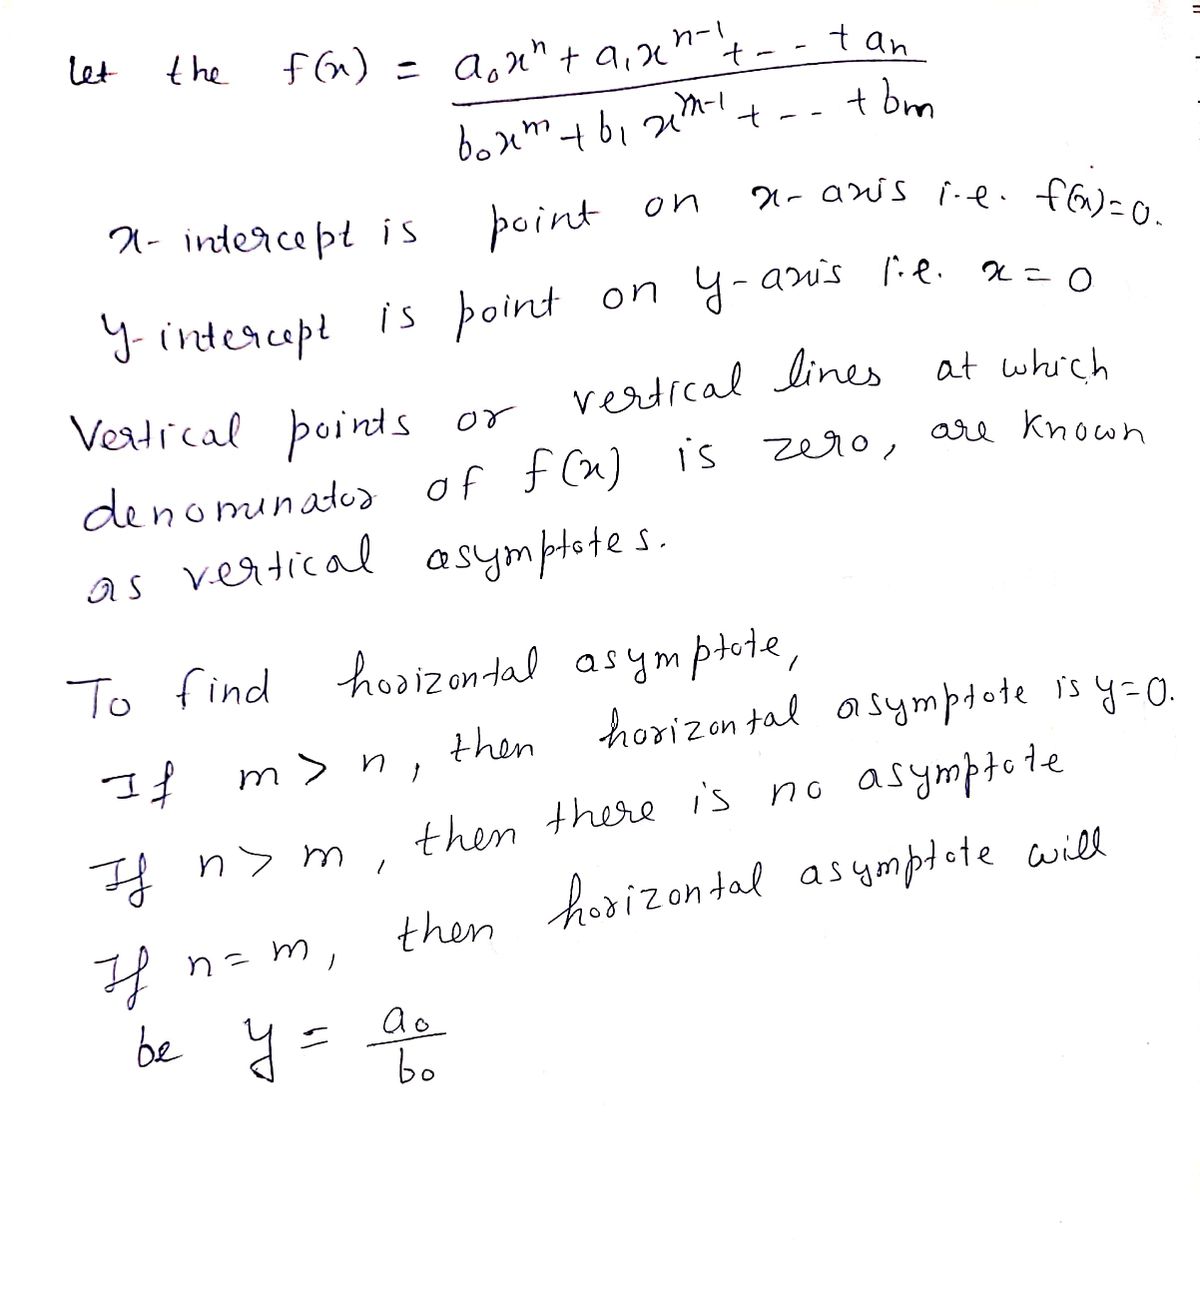 let the f(x) = a₀xⁿ + a₁xⁿ⁻¹ + - - + aₙ
b₀xᵐ + b₁xᵐ⁻¹ + - - + bₘ
x- intercept is point on x- axis i.e. f(x)=0.
y- intercept is point on y-axis i.e. x = 0
Vertical points or vertical lines at which
denominator of f(x) is zero, are known
as vertical asymptotes.
To find horizontal asymptote,
If m > n, then horizontal asymptote is y=0.
If n > m, then there is no asymptote
If n = m, then horizontal asymptote will
be y = a₀
b₀